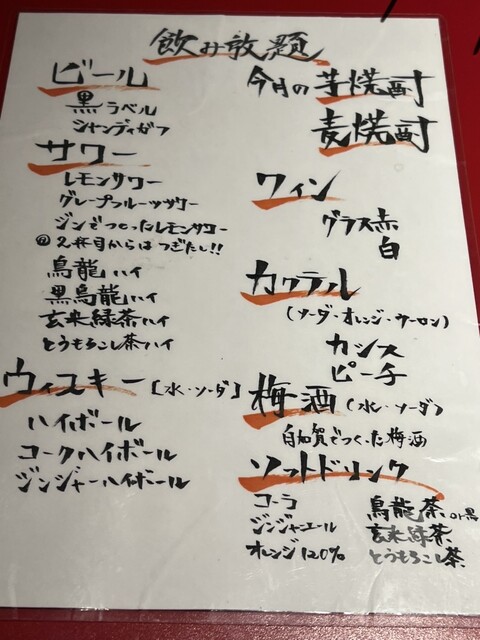 飲み放題
ビール
黒ラベル
シャンディガフ
サワー
レモンサワー
グレープフルーツサワー
ジンでつくったレモンサワー
@2杯目からはつぎたし!!
烏龍ハイ
黒烏龍ハイ
玄米緑茶ハイ
とうもろこし茶ハイ
ウィスキー[水・ソーダ]
ハイボール
コークハイボール
ジンジャーハイボール
今月の芋焼酎
麦焼酎
ワイン
グラス赤
白
カクテル
(ソーダ・オレンジ・ウーロン)
カシス
ピーチ
梅酒(水・ソーダ)
自加賀でつくった梅酒
ソフトドリンク
コーラ
ジンジャーエール
オレンジ120%
烏龍茶or黒
玄米緑茶
とうもろこし茶